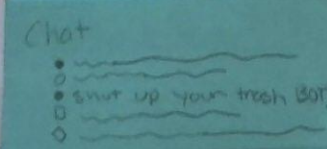 Chat
shut up your trash BOT